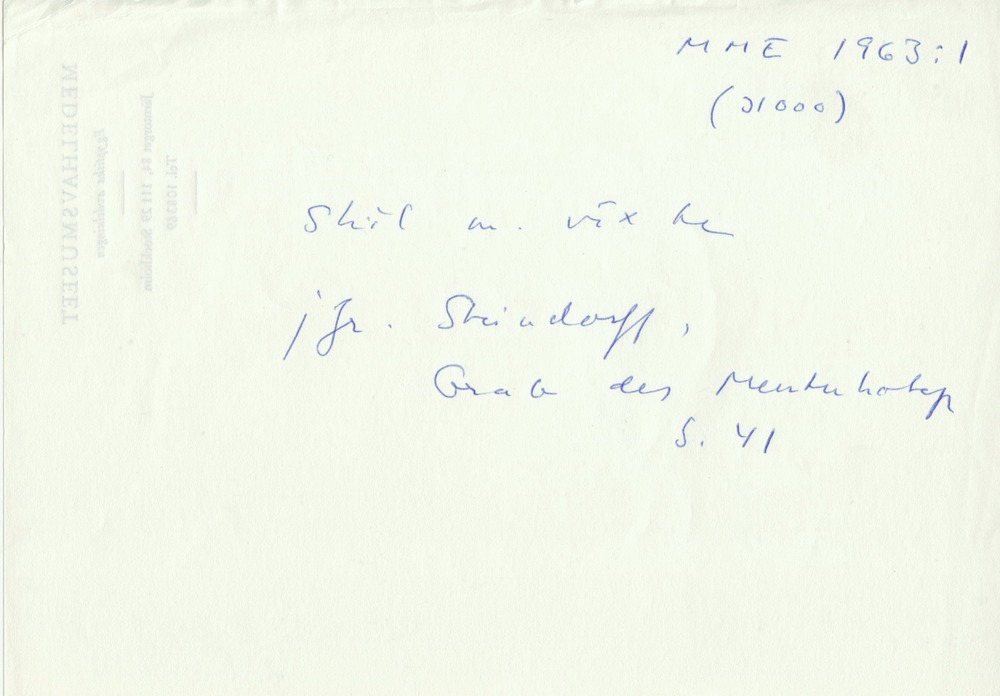 MME 1963:1
(31000)
Skål m. växter
jfr. Steindorff,
Grab des Mentuhotep
S. 41
MEDELHAVSMUSEET
Egyptiska avdelningen
Järntorget 84, 111 29 Stockholm
Tel. 108369